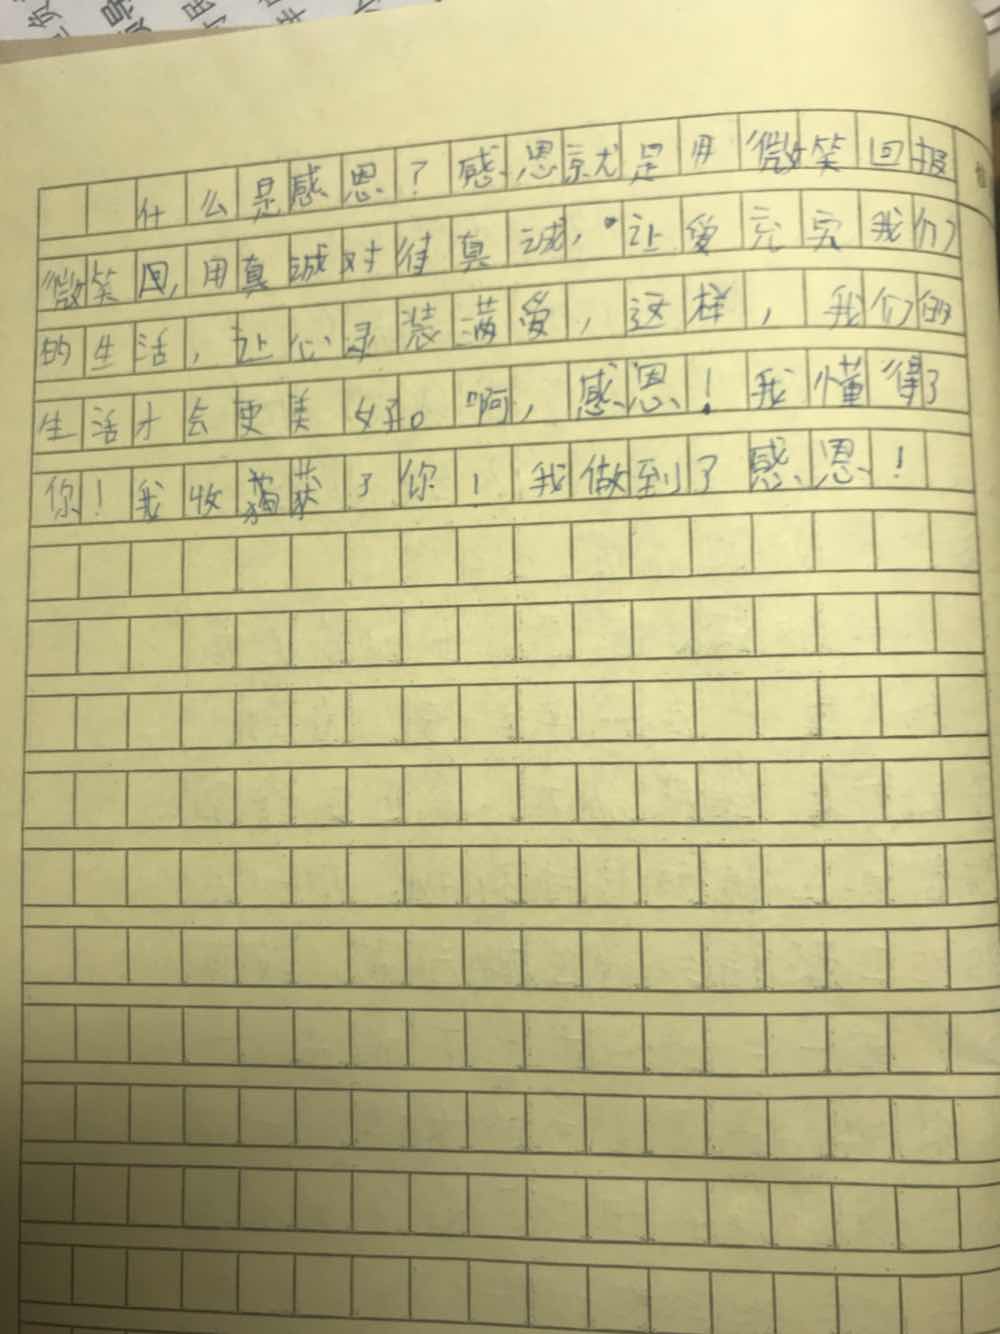 什么是感恩？感恩就是用微笑回报
微笑回，用真诚对待真诚，让爱充实我们
的生活，让心灵装满爱，这样，我们的
生活才会更美好。啊，感恩！我懂得了
你！我收获了你，我做到了感恩！